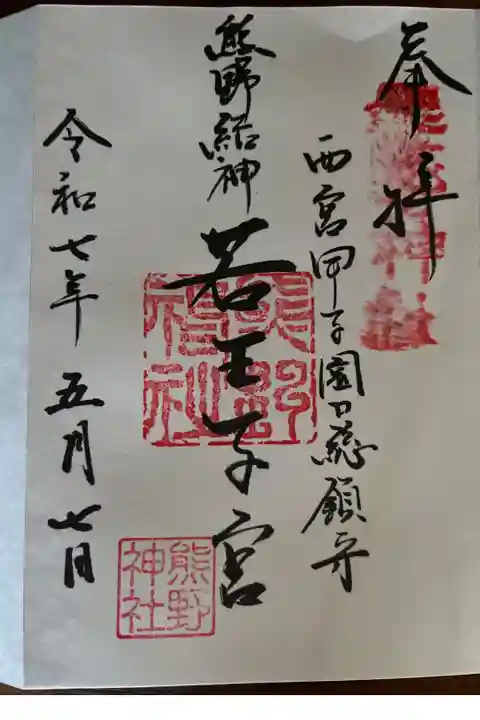 奉拝
西宮甲子園口総鎮守
熊野結神
若王子宮
令和七年五月七日
熊野
神社
熊野
神社